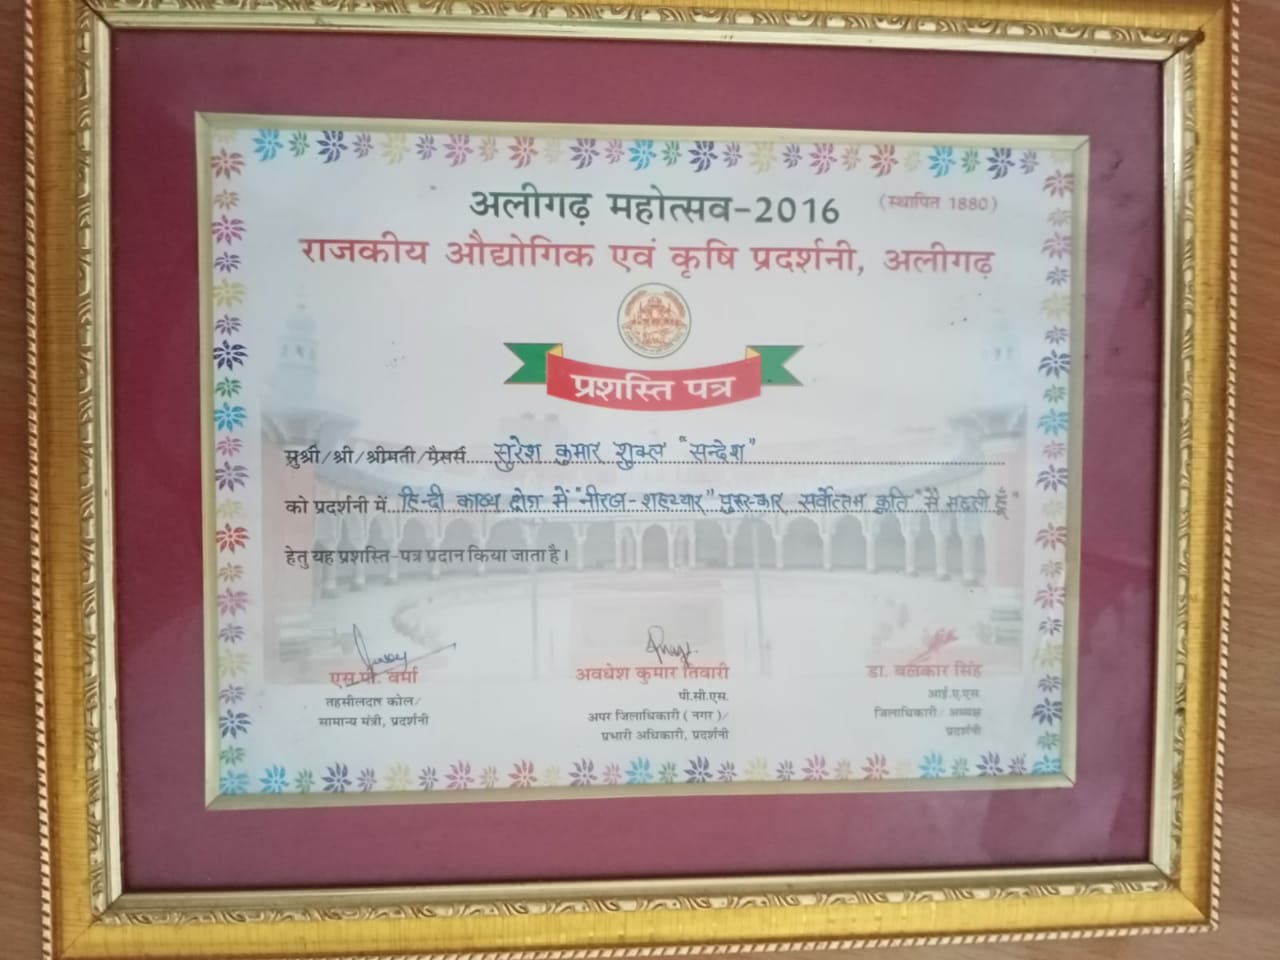 अलीगढ़ महोत्सव-2016 (स्थापित 1880)
राजकीय औद्योगिक एवं कृषि प्रदर्शनी, अलीगढ़
प्रशस्ति पत्र
सुश्री/श्री/श्रीमती/मैसर्स सुरेश कुमार शुक्ल "सन्देश"
को प्रदर्शनी में हिन्दी काव्य क्षेत्र में "नीरज-शहरयार" पुरस्कार सर्वोत्तम कृति "मैं
हेतु यह प्रशस्ति-पत्र प्रदान किया जाता है।
एस.पी. वर्मा
तहसीलदार कोल/
सामान्य मंत्री, प्रदर्शनी
अवधेश कुमार तिवारी
पी.सी.एस.
अपर जिलाधिकारी (नगर)/
प्रभारी अधिकारी, प्रदर्शनी
डा. बलकार सिंह
आई.ए.एस.
जिलाधिकारी/ अध्यक्ष
प्रदर्शनी